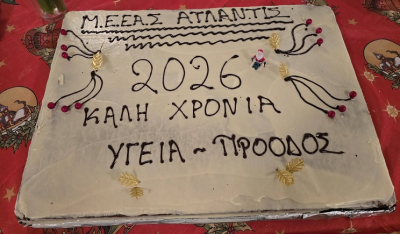 Μ.Ε.ΕΑΣ ΑΤΛΑΝΤΙΣ
2026
ΚΑΛΗ ΧΡΟΝΙΑ
ΥΓΕΙΑ ~ ΠΡΟΟΔΟΣ